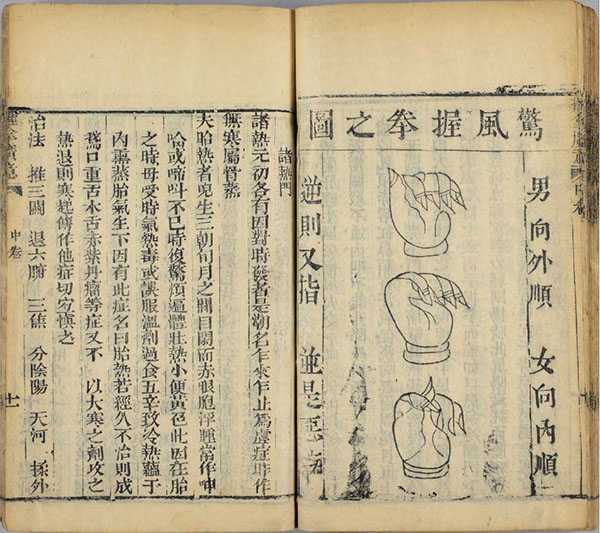 驚風握拳之圖
男向外順　女向內順
逆則又指　並是惡
諸熱門
諸熱元初各有因對時發者是潮名乍來乍止為虛症乍作
無寒屬骨蒸
夫胎熱者兒生三朝旬月之間目閉而赤眼胞浮腫常作呻
哈或啼叫不已時復驚煩遍體壯熱小便黃色此因在胎
之時母受時氣熱毒或誤服溫劑過食五辛致令熱蘊于
內熏蒸胎氣生下因有此症名曰胎熱若經久不治則成
鵝口重舌木舌赤葉丹瘤等症又不　以大寒之劑攻之
熱退則寒起傳作他症切宜慎之
治法　推三關　退六腑　三焦　分陰陽　天河　揉外
中卷
十